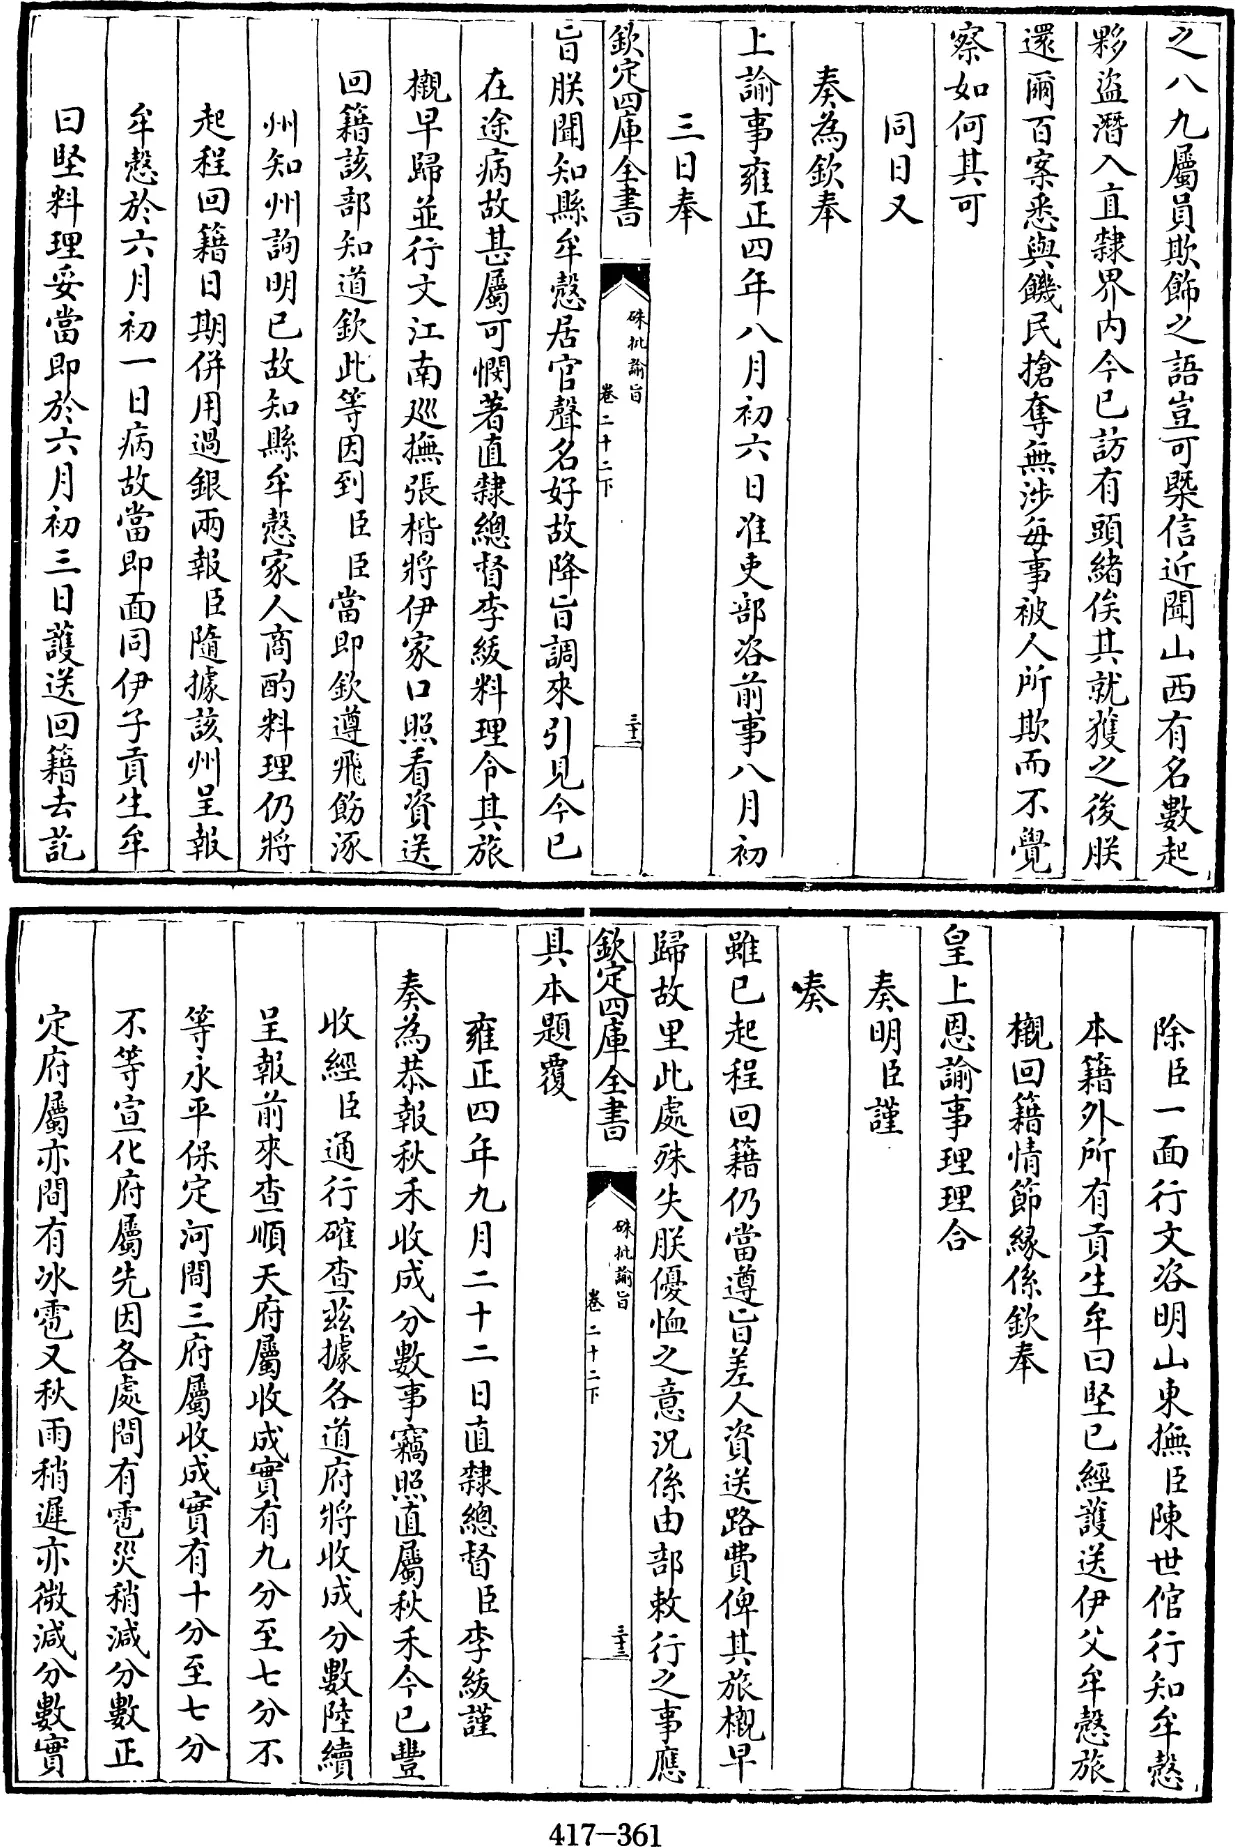 之八九屬員欺飾之語豈可槩信近聞山西有名數起
夥盜潛入直隸界内今已訪有頭緒俟其就獲之後朕
還爾百案悉與饑民搶奪無涉每事被人所欺而不覺
察如何其可
同日又
奏為欽奉
上諭事雍正四年八月初六日准吏部咨前事八月初
三日奉
欽定四庫全書
硃批諭旨
卷二十二下
三十二
旨朕聞知縣牟慤居官聲名好故降旨調來引見今已
在途病故甚屬可憫著直隸總督李紱料理令其旅
櫬早歸並行文江南廵撫張楷將伊家口照看資送
回籍該部知道欽此等因到臣臣當即欽遵飛飭涿
州知州詢明已故知縣牟慤家人商酌料理仍將
起程回籍日期併用過銀兩報臣隨據該州呈報
牟慤於六月初一日病故當即面同伊子貢生牟
曰堅料理妥當即於六月初三日護送回籍去訖
除臣一面行文咨明山東撫臣陳世倌行知牟慤
本籍外所有貢生牟曰堅已經護送伊父牟慤旅
櫬回籍情節緣係欽奉
皇上恩諭事理理合
奏明臣謹
奏
雖已起程回籍仍當遵旨差人資送路費俾其旅櫬早
歸故里此處殊失朕優恤之意況係由部敕行之事應
欽定四庫全書
硃批諭旨
卷二十二下
三十三
具本題覆
雍正四年九月二十二日直隸總督臣李紱謹
奏為恭報秋禾收成分數事竊照直屬秋禾今已豐
收經臣通行確查兹據各道府將收成分數陸續
呈報前來查順天府屬收成實有九分至七分不
等永平保定河間三府屬收成實有十分至七分
不等宣化府屬先因各處間有雹災稍減分數正
定府屬亦間有冰雹又秋雨稍遲亦微減分數實
417-361